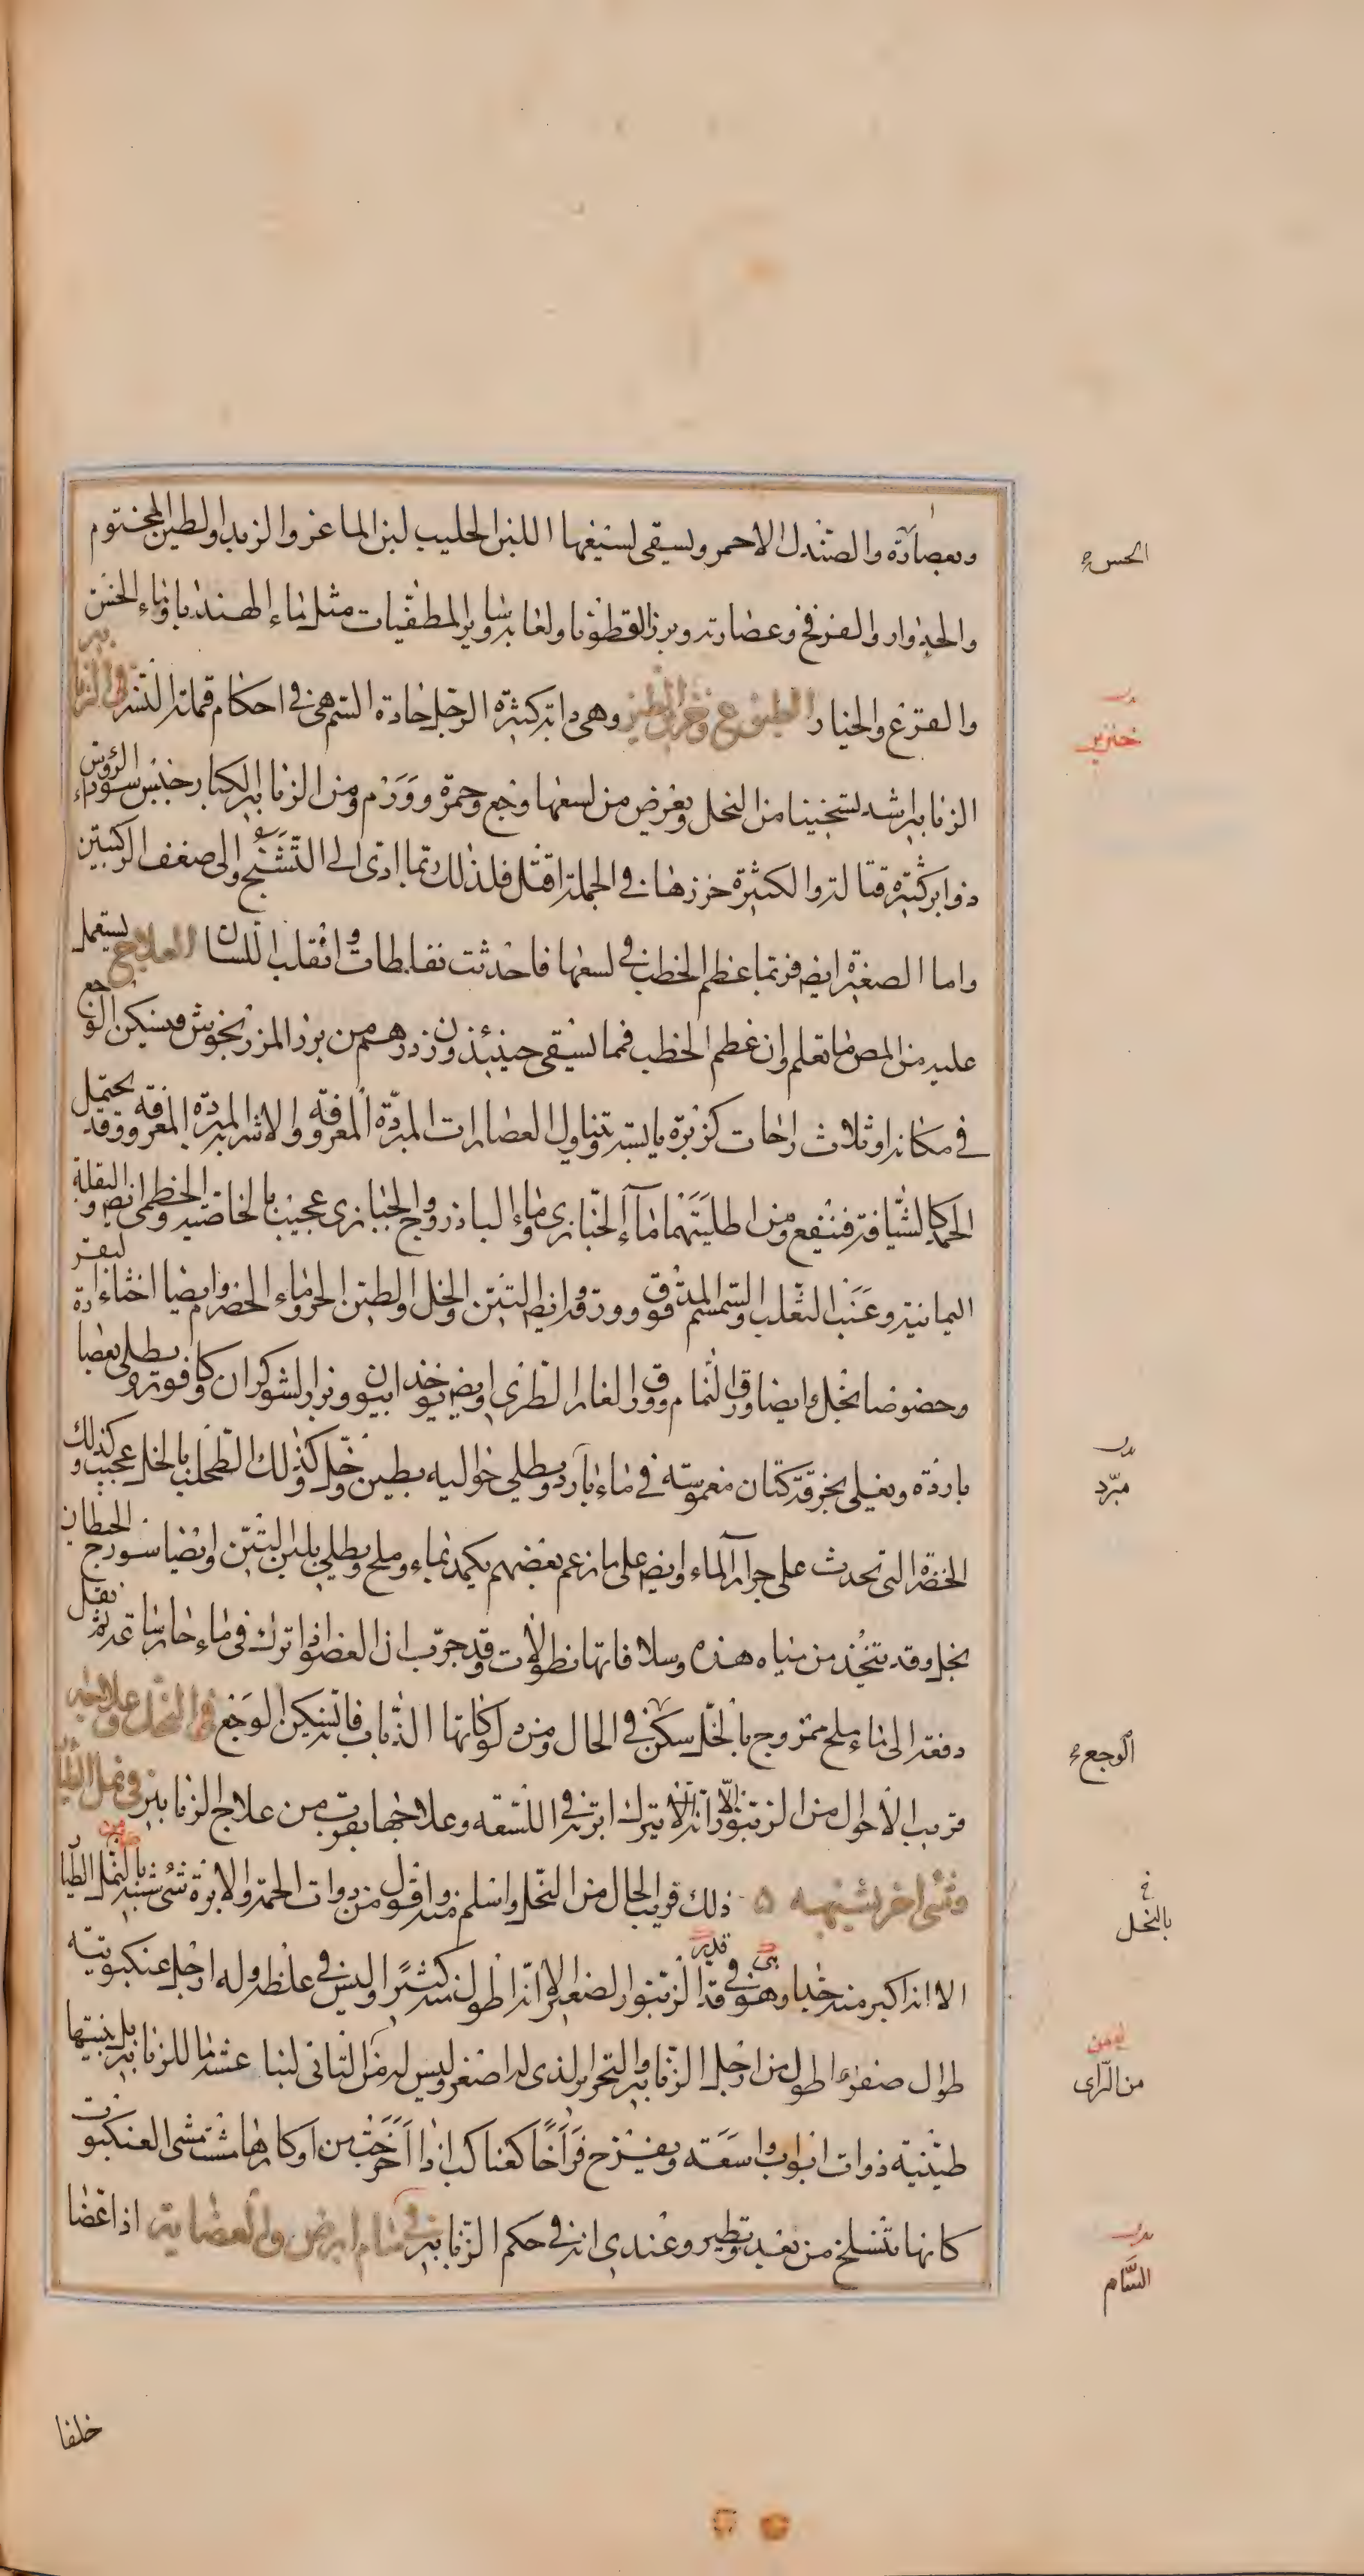 وبعصارته والصندل الاحمر ويسقى لسيعها اللبن الحليب لبن الماعز والزبد والطين المختوم
والجدوار والفرفخ وعصارته وبزر القطونا ولعابه وساير المطفيات مثل ماء الهندبا وماء الخس
والقرع والخيار الطبوع وهى دابة كثيرة الرجل حادة السم هى فى احكام قملة النسر فى الزنابير
الزنابير اشد تسخينا من النحل ويعرض من لسعها وجع وحمرة وورم ومن الزنابير الكبار جنس سوداء الرؤس
ذو ابر كثيرة قتالة والكثيرة خرزها فى الجملة اقتل فلذلك ربما ادى الى التشنج والى ضعف الركبتين
واما الصغيرة ايضا فربما عظم الخطب فى لسعها فاحدثت نفاطات وانقلب اللسان العلاج يستعمل
عليه من المص ما تعلم وان عظم الخطب فمما يسقى حينئذ وزن درهم من بزر المرزنجوش فيسكن الوجع
فى مكانه او ثلاث راحات كزبرة يابسة وتناول العصارات المبردة المعروفة والاشربة المبردة المعروفة وقد يحتمل
الجمد كالشيافة فينفع ومن اطليتهما ماء الخبازى وماء الباذروج والخبازى عجيب بالخاصية والخطمى ايضا والبقلة
اليمانية وعنب الثعلب والسمسم المدقوق وورقه ايضا والتين والخل والطين الحر وماء الحصرم وايضا اخثاء البقر
وخصوصا بخل وايضا ورق النمام وورق الغار الطرى وايضا يوخذ افيون وبزر الشوكران وكافور ويطلى بعصارة
باردة ويغلى بخرقة كتان مغموسة فى ماء بارد ويطلى حواليه بطين وخل وكذلك الطحلب بالخل عجيب وكذلك
الخضرة التى تحدث على جرار الماء وايضا على ما زعم بعضهم يكمد بماء وملح ويطلى بلبن التين وايضا سورج الحيطان
بخل وقد يتخذ من مياه هذه وسلافاتها نطولات وقد جرب ان العضو اذا ترك فى ماء حار ساعة ثم نقل
دفعة الى ماء ملح ممزوج بالخل سكن فى الحال ومن دلوكاتها الذباب فانه يسكن الوجع فى النحل وعلاجه
قريب الاحوال من الزنبور الا انه يترك ابرته فى اللسعة وعلاجها يقرب من علاج الزنابير فى نمل الطيار
وشئ اخر يشبهه ۵ ذلك قريب الحال من النحل واسلم منه واقول من ذوات الحمة والابرة شئ شبيه بالنمل الطيار
الا انه اكبر منه جدا وهو فى قد الزنبور الصغير الا انه اطول منه كثيرا وليس فى غلظه وله ارجل عنكبوتية
طوال صفر اطول من ارجل الزنابير والتحزيز الذى له اصغر وليس له من التانى لبنا عشه ما للزنابير بل يبنيها
طينية ذوات ابواب واسعة ويفرخ فراخا كعناكب اذا اخرجت من اوكارها مشت مشى العنكبوت
كانها تنسلخ من بعد وتطير وعندى انه فى حكم الزنابير فى سام ابرص والعضاية اذا عضا
الحس
خنزير
مبرد
الوجع
بالنحل
من الراى
السام
خلفا